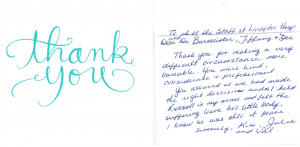 thank
you
To all the Staff at Livingston Hosp
Dear Dr Burmeister, Tiffany & Dee
Thank you for making a very
difficult circumstance more
bearable. You were kind,
considerate & professional
You assured us we had made
the right decision and as I held
Russell in my arms and felt the
suffering leave his little body,
I knew he was at peace
Sincerely, Julia
and